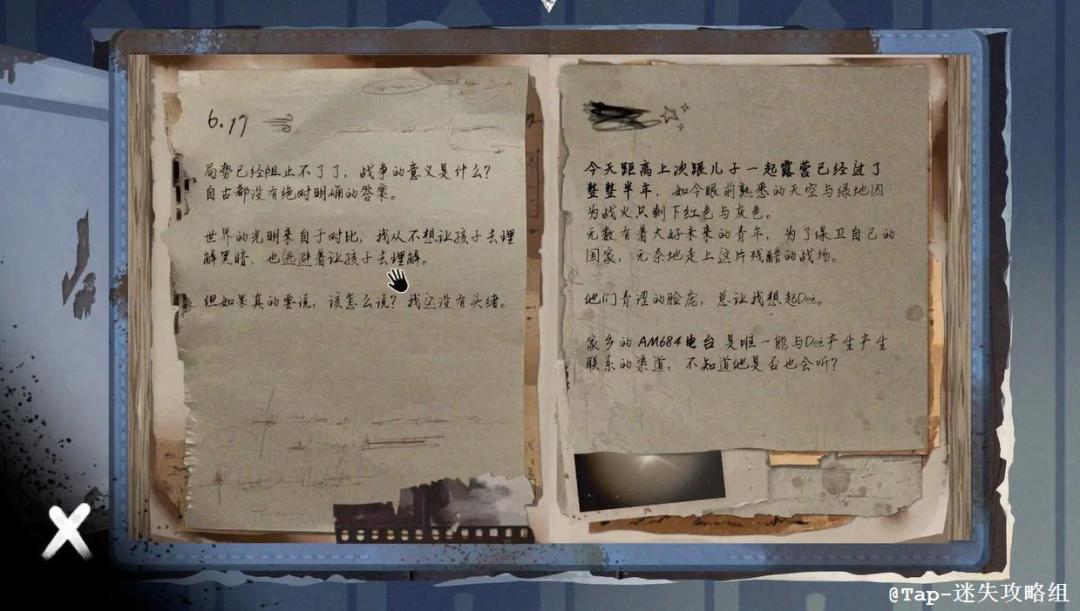 6.17
局势已经阻止不了了，战争的意义是什么？
自古都没有绝对明确的答案。
世界的光明来自于对比，我从不想让孩子去理
解黑暗、也逃避着让孩子去理解。
但如果真的要说，该怎么说？我还没有头绪。
今天距离上次跟儿子一起露营已经过了
整整半年，如今眼前熟悉的天空与绿地因
为战火只剩下红色与灰色。
无数有着大好未来的青年，为了保卫自己的
国家，无奈地走上这片残酷的战场。
他们青涩的脸庞，总让我想起Dez。
家乡的AM684电台是唯一能与Dez产生产生
联系的渠道，不知道他是否也会听？
@Tap-迷失攻略组